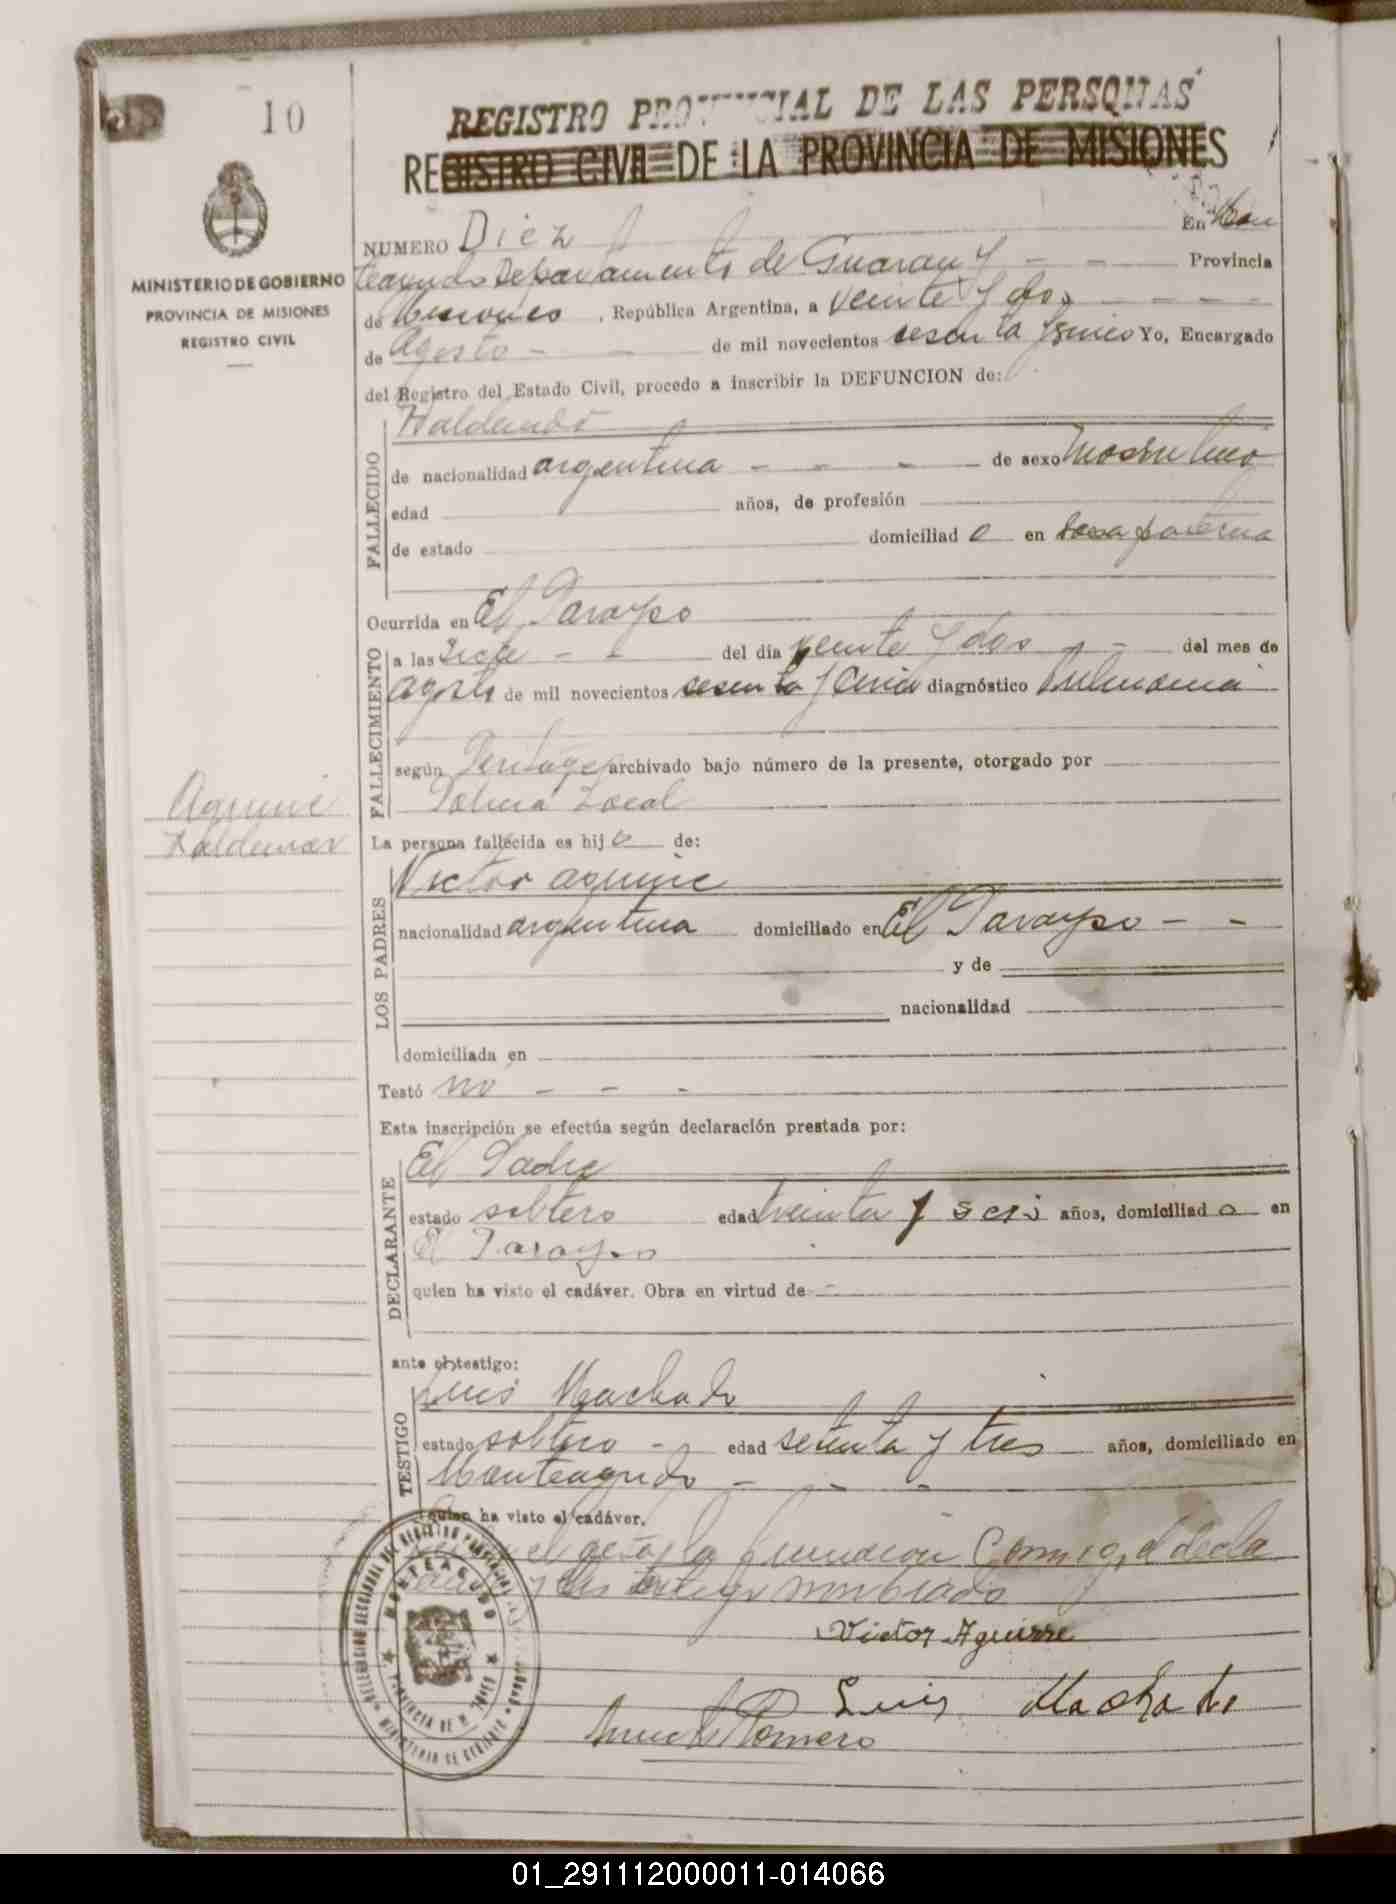 10
REGISTRO PROVINCIAL DE LAS PERSONAS
REGISTRO CIVIL DE LA PROVINCIA DE MISIONES
MINISTERIO DE GOBIERNO
PROVINCIA DE MISIONES
REGISTRO CIVIL
NUMERO Diez En Mon
teagudo Departamento de Guarany - - Provincia
de Misiones, República Argentina, a veinte y dos - - - -
de Agosto - - de mil novecientos sesenta y cinco Yo, Encargado
del Registro del Estado Civil, procedo a inscribir la DEFUNCION de:
FALLECIDO
de nacionalidad argentina - - - - de sexo masculino
edad años, de profesión
de estado domiciliad o en casa paterna
Ocurrida en El Parayso
FALLECIMIENTO
a las siete - - del día veinte y dos - - del mes de
agosto de mil novecientos sesenta y cinco diagnóstico Pulmonia
según archivado bajo número de la presente, otorgado por
Policia Local
Aguirre
Waldemar
La persona fallecida es hijo de:
LOS PADRES
Victor Aguirre
nacionalidad argentina domiciliado en El Parayso - -
y de
nacionalidad
domiciliada en
Testó no - - -
Esta inscripción se efectúa según declaración prestada por:
DECLARANTE
El Padre
estado soltero edad treinta y seis años, domiciliad o en
El Parayso
quien ha visto el cadáver. Obra en virtud de -
ante el testigo:
TESTIGO
Luis Machado
estado soltero - edad setenta y tres años, domiciliado en
Monteagudo - - -
quien ha visto el cadáver.
el acta la
nombrado
Victor Aguirre
Luis Machado
Romero
MONTEAGUDO
01_291112000011-014066